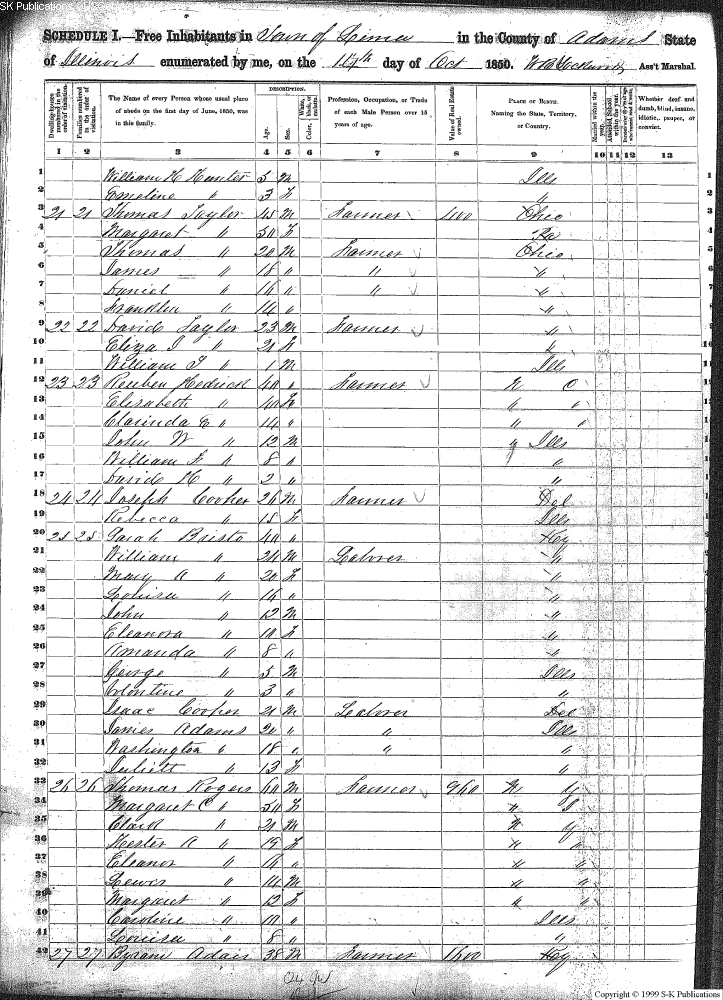 SK Publications
SCHEDULE I.—Free Inhabitants in Town of Lima in the County of Adams State
of Illinois enumerated by me, on the 14th day of Oct 1850. Ass't Marshal.
Dwelling-houses numbered in the order of visitation.
Families numbered in the order of visitation.
The Name of every Person whose usual place of abode on the first day of June, 1850, was in this family.
DESCRIPTION.
Age.
Sex.
Color, White, black, or mulatto.
Profession, Occupation, or Trade of each Male Person over 15 years of age.
Value of Real Estate owned.
PLACE OF BIRTH. Naming the State, Territory, or Country.
Married within the year.
Attended School within the year.
Whether deaf and dumb, blind, insane, idiotic, pauper, or convict.
1 2 3 4 5 6 7 8 9 10 11 12 13
1 William H Hunter 5 M Ills 1
2 Emeline " 3 F " 2
3 21 21 Thomas Taylor 45 M Farmer 400 Ohio 3
4 Margaret " 50 F Pa 4
5 Thomas " 20 M Farmer Ohio 5
6 James " 18 " " " 6
7 Daniel " 16 " " " 7
8 Franklin " 14 " " 8
9 22 22 David Taylor 23 M Farmer " 9
10 Eliza J " 21 F " 10
11 William T " 1 M Ills 11
12 23 23 Reuben Hedrick 40 " Farmer N C 12
13 Elisabeth " 40 F " " 13
14 Clarinda E " 14 " " " 14
15 John W " 12 M Ills 15
16 William F " 8 " " 16
17 David H " 2 " " 17
18 24 24 Joseph Cooper 26 M Farmer Del 18
19 Rebecca " 18 F Ills 19
20 25 25 Sarah Bristo 40 " Key 20
21 William " 24 M Laborer " 21
22 Mary A " 20 F " 22
23 Louisa " 16 " " 23
24 John " 12 M " 24
25 Eleanora " 10 F " 25
26 Amanda " 8 " " 26
27 George " 5 M Ills 27
28 " 3 " " 28
29 Isaac Cooper 21 M Laborer Del 29
30 James Adams 20 " " Ills 30
31 Washington " 18 " " " 31
32 Juliett " 13 F " 32
33 26 26 Thomas Rogers 60 M Farmer 960 N Y 33
34 Margaret C " 50 F " J 34
35 Clark " 21 M N Y 35
36 Hester A " 19 F " " 36
37 Eleanor " 16 " " " 37
38 Lewis " 14 M " " 38
39 Margaret " 12 F " " 39
40 Caroline " 10 " Ills 40
41 Louisa " 8 " " 41
42 27 27 Byram Adair 38 M Farmer 1600 Key 42
Copyright © 1999 S-K Publications